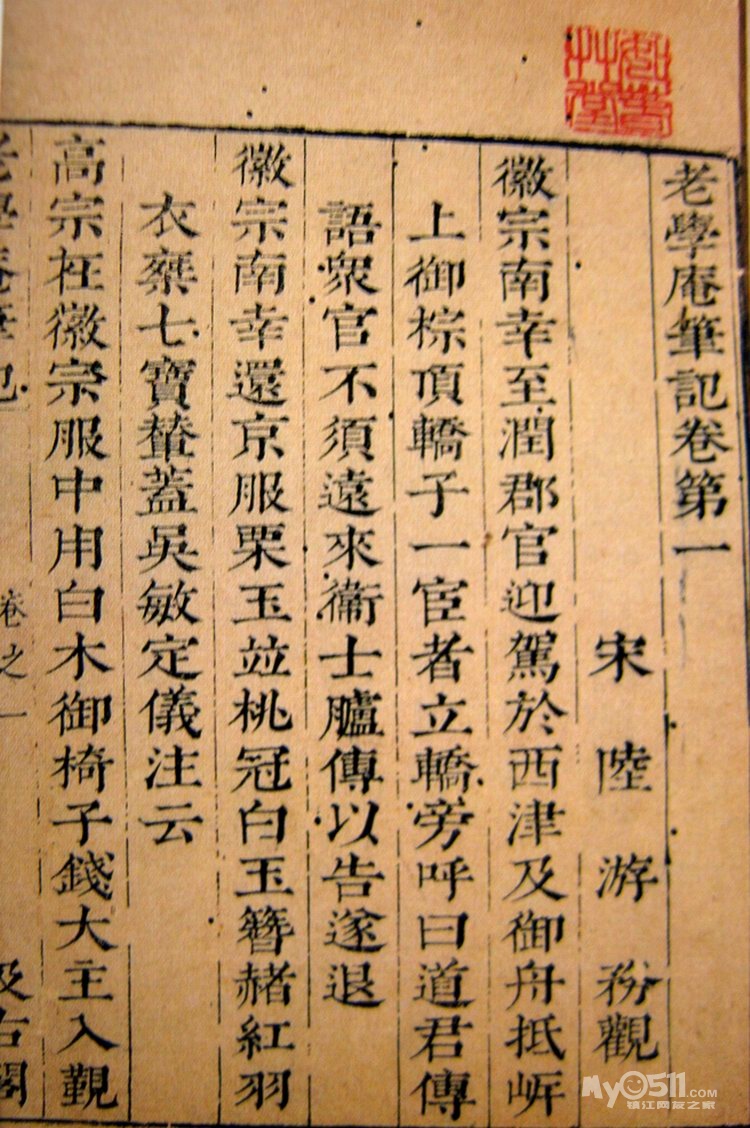 老學庵筆記卷第一
宋 陸 游 務觀
徽宗南幸至潤郡官迎駕於西津及御舟抵岸
上御棕頂轎子一宦者立轎旁呼曰道君傳
語衆官不須遠來衞士臚傳以告遂退
徽宗南幸還京服栗玉並桃冠白玉簪赭紅羽
衣乘七寶輦蓋吳敏定儀注云
高宗在徽宗服中用白木御椅子錢大主入覲
老學庵筆記 卷之一 汲古閣
My0511.com
镇江网友之家